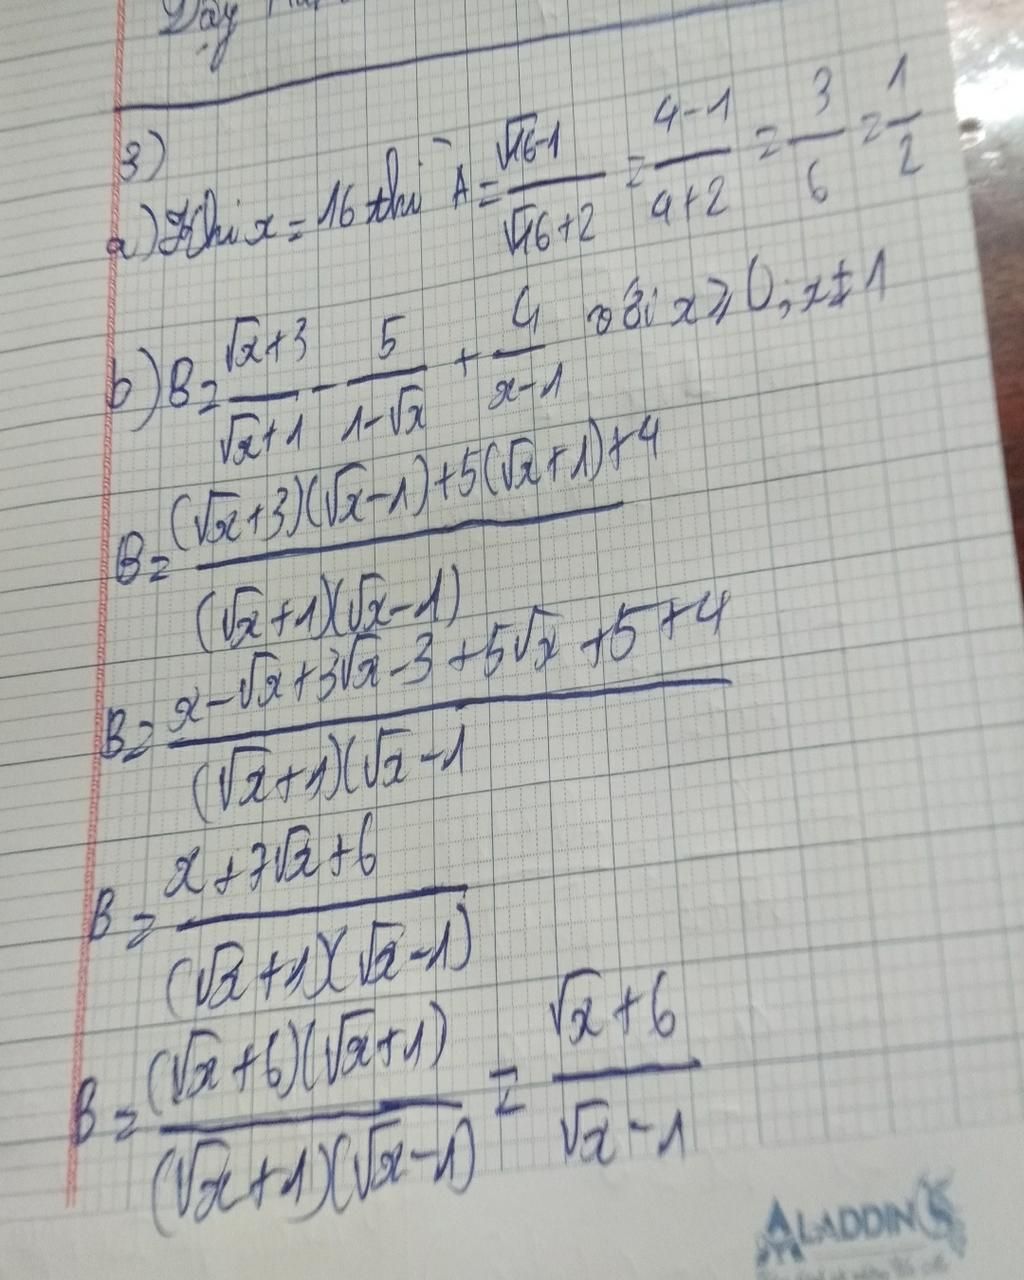 Dây
3)
a) Khi x = 16 thì A = \frac{\sqrt{16}-1}{\sqrt{16}+2} = \frac{4-1}{4+2} = \frac{3}{6} = \frac{1}{2}
b) B = \frac{\sqrt{x}+3}{\sqrt{x}+1} - \frac{5}{1-\sqrt{x}} + \frac{4}{x-1} với x ≥ 0; x ≠ 1
B = \frac{(\sqrt{x}+3)(\sqrt{x}-1)+5(\sqrt{x}+1)+4}{(\sqrt{x}+1)(\sqrt{x}-1)}
B = \frac{x-\sqrt{x}+3\sqrt{x}-3+5\sqrt{x}+5+4}{(\sqrt{x}+1)(\sqrt{x}-1}
B = \frac{x+7\sqrt{x}+6}{(\sqrt{x}+1)(\sqrt{x}-1)}
B = \frac{(\sqrt{x}+6)(\sqrt{x}+1)}{(\sqrt{x}+1)(\sqrt{x}-1)} = \frac{\sqrt{x}+6}{\sqrt{x}-1}
ALADDIN